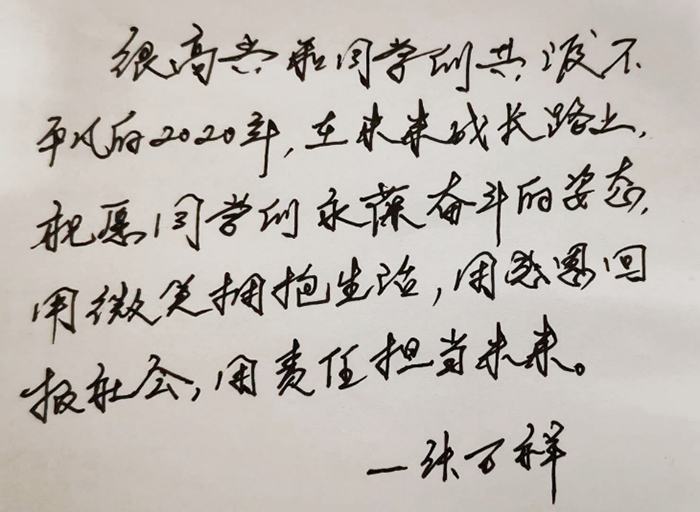 很高兴和同学们共渡不
平凡的2020年，在未来成长路上，
祝愿同学们永葆奋斗的姿态，
用微笑拥抱生活，用感恩回
报社会，用责任担当未来。
—张万祥